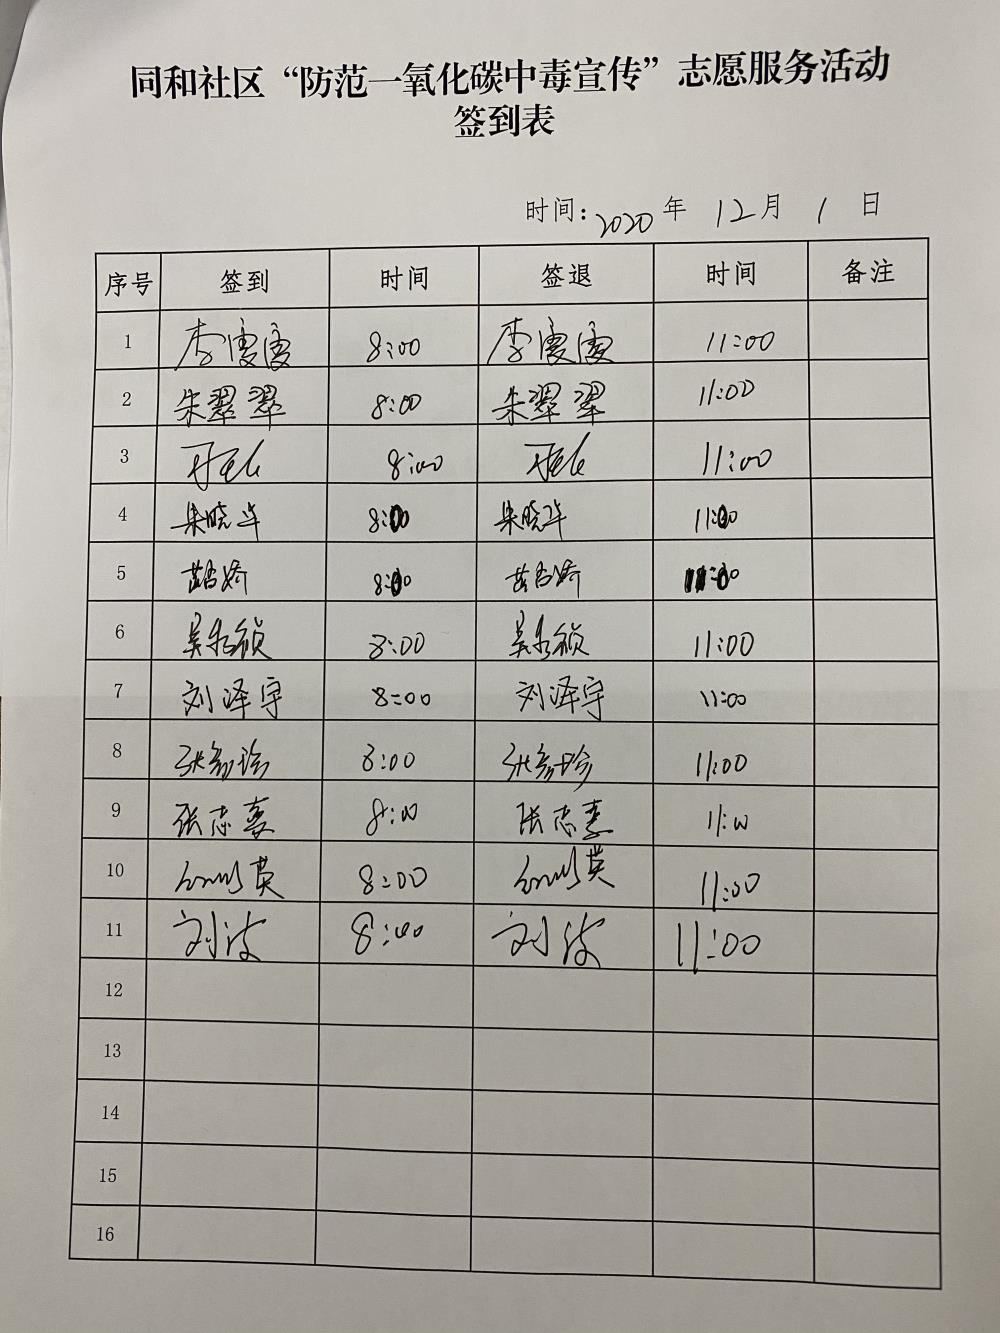 同和社区“防范一氧化碳中毒宣传”志愿服务活动
签到表
时间：2020年 12月 1 日
序号 签到 时间 签退 时间 备注
1 李霞霞 8:00 李霞霞 11:00
2 朱翠翠 8:00 朱翠翠 11:00
3 8:00 11:00
4 朱晓华 8:00 朱晓华 11:00
5 8:00 11:00
6 8:00 11:00
7 刘泽宇 8:00 刘泽宇 11:00
8 8:00 11:00
9 张志喜 8:00 张志喜 11:00
10 8:00 11:00
11 刘波 8:00 刘波 11:00
12
13
14
15
16